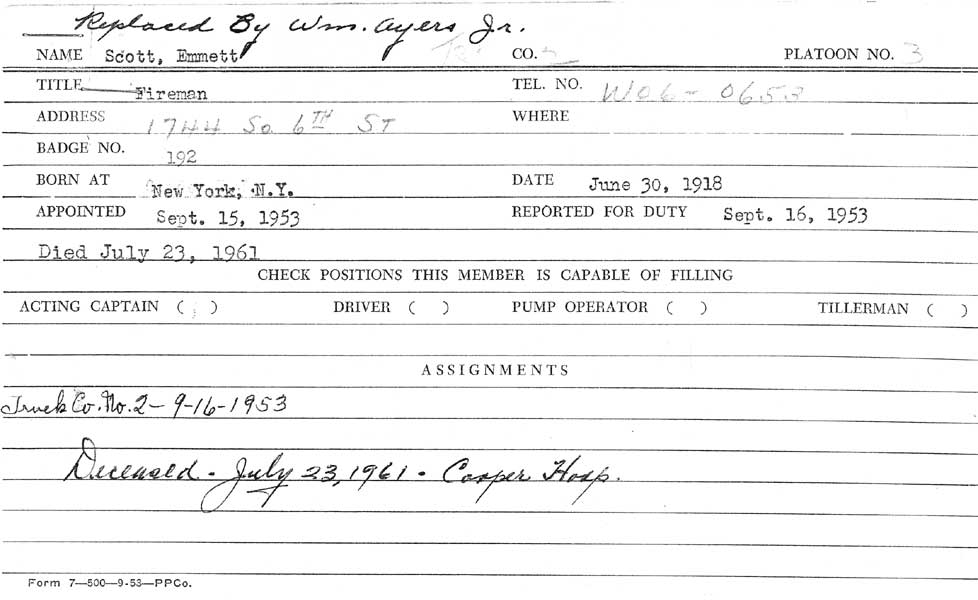 Replaced By Wm. Ayers Jr.
NAME Scott, Emmett CO. 2 PLATOON NO. 3
TITLE Fireman TEL. NO. WO6-0653
ADDRESS 1744 So. 6TH ST WHERE
BADGE NO. 192
BORN AT New York, N.Y. DATE June 30, 1918
APPOINTED Sept. 15, 1953 REPORTED FOR DUTY Sept. 16, 1953
Died July 23, 1961
CHECK POSITIONS THIS MEMBER IS CAPABLE OF FILLING
ACTING CAPTAIN ( ) DRIVER ( ) PUMP OPERATOR ( ) TILLERMAN ( )
ASSIGNMENTS
Truck Co. No. 2 - 9-16-1953
Deceased - July 23, 1961 - Cooper Hosp.
Form 7—500—9-53—PPCo.